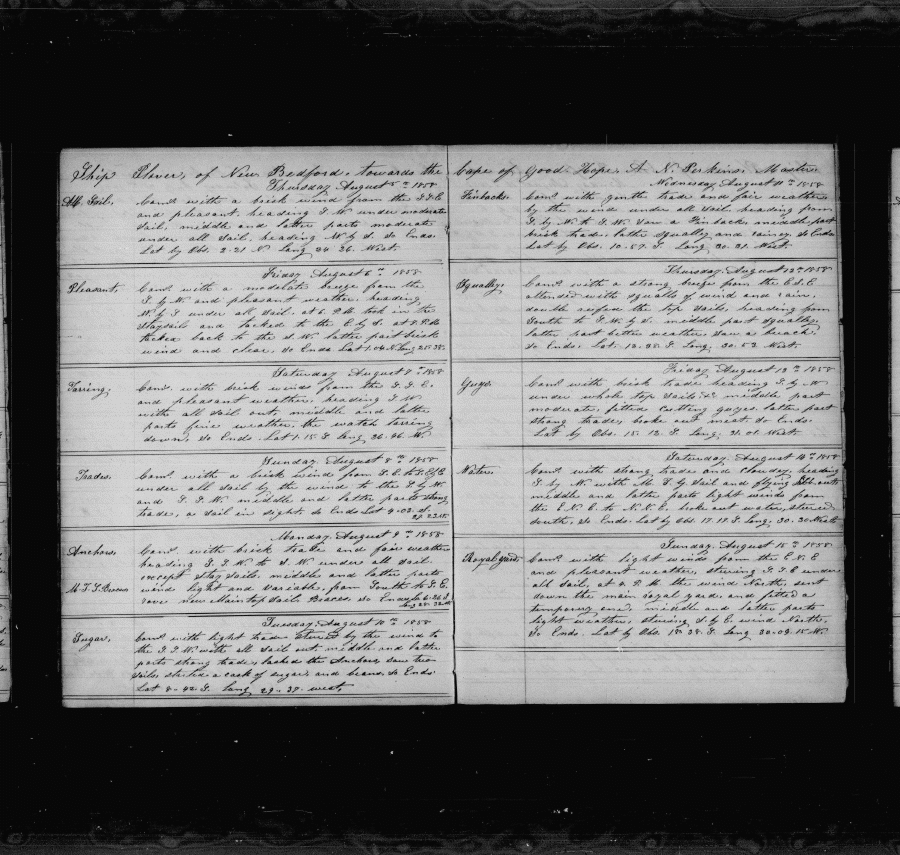 Ship Plover, of New Bedford, towards the
Thursday August 5th 1858
All Sail.
Comd. with a brick wind from the S.S.E
and pleasant heading S.W. under moderate
sail, middle and latter parts moderate
under all sail, heading W by S. So Ends.
Lat by Obs. 2-21 N Long 24-36 West
Friday August 6th 1858
Pleasant,
Comd. with a moderate breeze from the
S. by W and pleasant weather, heading
W. by S under all sail. at 6. P.M. took in the
Staysails and tacked to the E by S. at 7. P.M.
tacked back to the S.W. latter part brick
wind and clear, So Ends Lat 1.04 N. Long 25.38.
Saturday August 7th 1858
Tarring,
Comd. with brick winds from the S.S.E.
and pleasant weather, heading S.W.
with all sail out, middle and latter
parts fine weather, the watch tarring
down, So Ends Lat 1.15 S. Long 26.46. W.
Sunday August 8th 1858
Trades.
Comd. with a brick wind from S.E. to S.E by E
under all sail by the wind to the S by W
and S.S.W. middle and latter parts strong
trades, a sail in sight, So Ends Lat 4-03. S.
27.23. W.
Monday August 9th 1858
Anchors,
Comd. with brick trade and fair weather
heading S.S.W. to S.W. under all sail
except Stay Sails. middle and latter parts
M.T.S. Braces
wind light and variable, from South to S.E.
rove new Main top Sail Braces, So Ends Lat 6-26 S
Long 28-32 W
Tuesday August 10th 1858
Sugar,
Comd. with light trades steered by the wind to
the S.S.W. with all sail out, middle and latter
parts strong trades, lashed the Anchors, saw two
sails, started a cask of sugar, and beans, So Ends
Lat 8-42 S. Long 29-37 west,
Cape of Good Hope, A. N. Perkins, Master
Wednesday August 11th 1858
Finbacks.
Comd. with gentle trade and fair weather
by the wind under all sail heading from
S. by W. to S.W. saw a Finback, middle part
brick trade, latter squally and rainey. So Ends
Lat by Obs. 10-57. S Long 30-21. West.
Thursday August 12th 1858
Squally.
Comd. with a strong breeze from the E.S.E
attended with squalls of wind and rain,
double reefed the top sails, heading from
South to S.W. by S. middle part squally,
latter part better weather, saw a breach.
So Ends. Lat. 12-38. S Long. 30-53 West.
Friday August 13th 1858
Guys
Comd. with brick trade heading S. by W
under whole top Sails &c middle part
moderate, fitted cutting guyes, latter part
strong trades, broke out meat. So Ends.
Lat by Obs. 15-12. S. Long. 31-01. West.
Saturday August 14th 1858
Water.
Comd. with strong trade and cloudy, heading
S. by W. with M.T.G. Sail and flying Jibb out,
middle and latter parts light winds from
the E.N.E. to N.N.E. broke out water, steered
south, So Ends. Lat by Obs 17.17. S. Long. 30-30 West.
Sunday, August 15th 1858
Royal Yard.
Comd. with light winds from the E.N.E
and pleasant weather, steering S.S.E under
all sail, at 4. P.M. the wind North, sent
down the main royal yard, and fitted a
temporary one, middle and latter parts
light weather, steering S. by E. wind North,
So Ends. Lat by Obs. 18-38. S. Long 30-09-15 W.